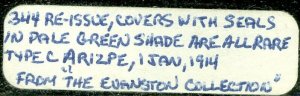 344 RE-ISSUE, COVERS WITH SEALS
IN PALE GREEN SHADE ARE ALL RARE
TYPE C ARIZPE, 1 JAN, 1914
"FROM THE EVANSTON COLLECTION"